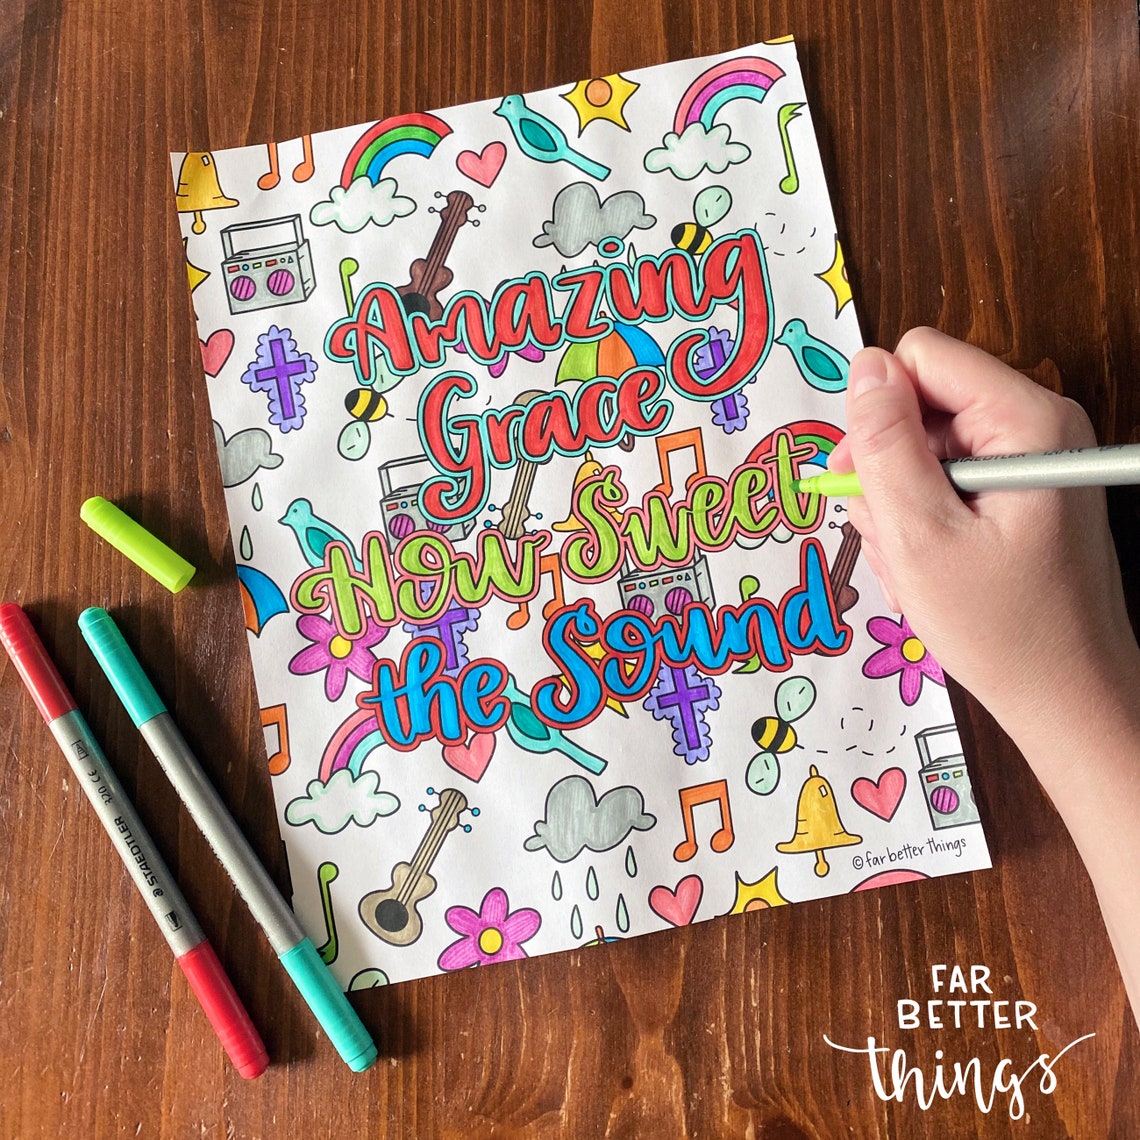 Amazing
Grace
How Sweet
the Sound
©far better things
STAEDTLER
320 CE
FAR
BETTER
things